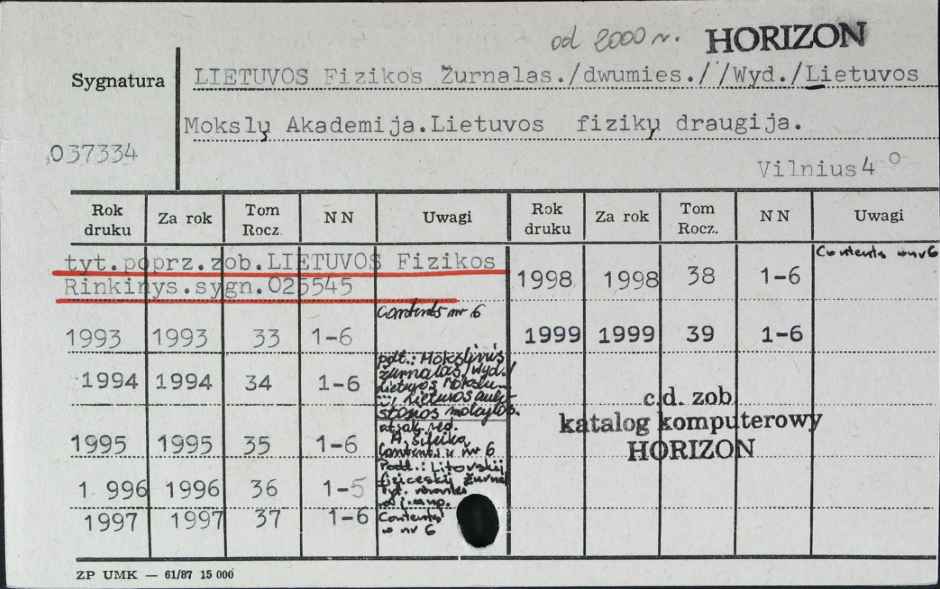 od 2000 r. HORIZON
Sygnatura
LIETUVOS Fizikos Žurnalas./dwumies.//Wyd./Lietuvos
Mokslų Akademija.Lietuvos fizikų draugija.
037334
Vilnius 4°
Rok druku Za rok Tom Rocz. NN Uwagi Rok druku Za rok Tom Rocz. NN Uwagi
tyt.poprz.zob.LIETUVOS Fizikos
Rinkinys.sygn.025545
Contents nr 6
1993 1993 33 1-6
1994 1994 34 1-6
podt.: Mokslinis
žurnalas/Wyd./
Lietuvos
Lietuvos
1995 1995 35 1-6
Contents w nr 6
1 996 1996 36 1-5
Podt.: Litovskij
fiziceskij žurnal
1997 1997 37 1-6
Contents
w nr 6
1998 1998 38 1-6
Contents w nr 6
1999 1999 39 1-6
c.d. zob
katalog komputerowy
HORIZON
ZP UMK — 61/87 15 000